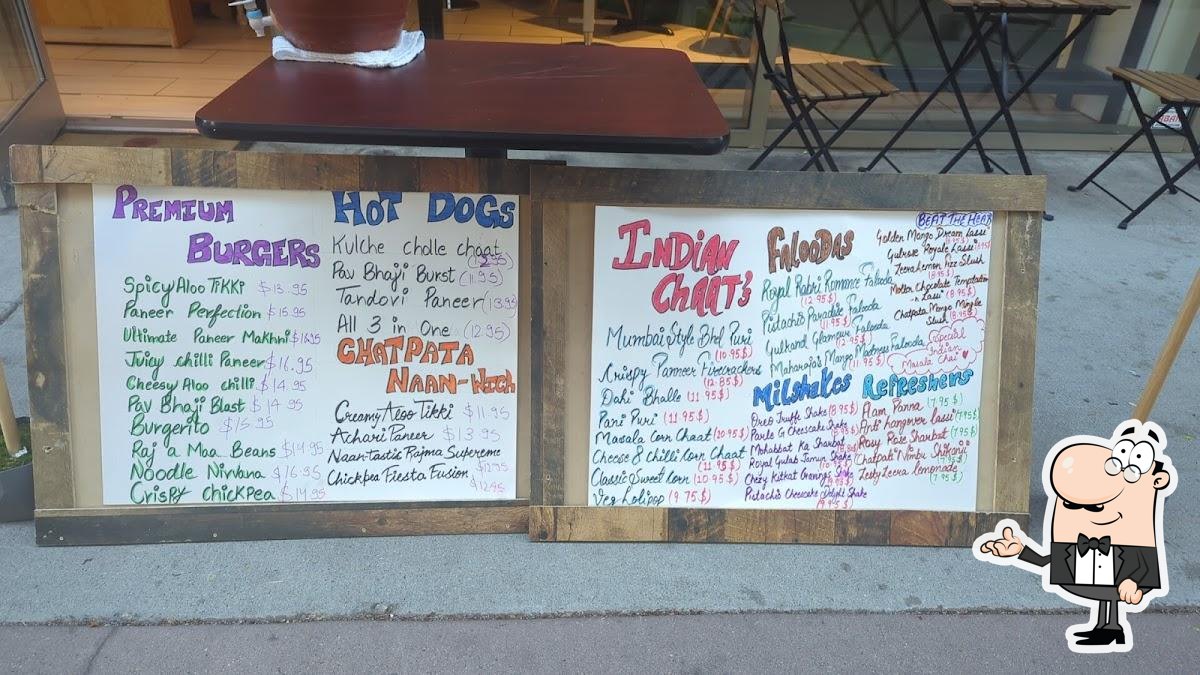 PREMIUM
BURGERS
Spicy Aloo Tikki $13.95
Paneer Perfection $15.95
Ultimate Paneer Makhni $16.95
Juicy chilli Paneer $16.95
Cheesy Aloo chilli $14.95
Pav Bhaji Blast $14.95
Burgerito $15.95
Raj'a Maa Beans $14.95
Noodle Nirvana $16.95
Crispy Chickpea $14.95
HOT DOGS
Kulche cholle chaat
Pav Bhajji Burst (11.95)
Tandovi Paneer (13.95)
All 3 in One (12.95)
CHATPATA
NAAN-WICH
Creamy Aloo Tikki $11.95
Achari Paneer $13.95
Naan-tastic Rajma Supereme
$12.95
Chickpea Fiesta Fusion
$12.95
INDIAN
CHAAT'S
Mumbai Style Bhel Puri
(10.95$)
Crispy Panneer Firecrackers
(12.85$)
Dahi Bhalle (11.95$)
Pani Puri (11.95$)
Masala Corn Chaat (10.95$)
Cheese & Chilli Corn Chaat
(11.95$)
Classic Sweet Corn (10.95$)
Veg Lolipop (9.75$)
FALOODAS
Royal Rabri Romance Falooda
(12.95$)
Pistachio Paradise Falooda
(11.95$)
Gulkand Glamour Falooda
(12.95$)
Maharaja's Mango Madness Falooda
(11.95$)
MilSHAKES
Oreo Truffe Shake (8.95$)
Parle G Cheescake Shake
Mohabbat Ka Sharbat
Royal Gulab Jamun Shake
Chezy Kitkat Cravings Shake
Pistachio Cheesecake Delight Shake
(9.95$)
BEAT THE HEAT
Golden Mango Dream Lassi
(8.95$)
Gulrose Royale Lassi (8.95$)
Zeera Lemon Fizz Slush
(8.95$)
Molten Chocolate Temptation
Lassi (8.95$)
Chatpata Mango Mingle
Slush (8.95$)
Special
Indian
Masala Chai
REFRESHERS
Aam Panna (7.95$)
Anti hangover lassi (7.95$)
Rosy Rose Sharbat (7.95$)
Chatpati Nimbu Shikanji
(7.95$)
Zesty Zeera lemonade
(7.95$)